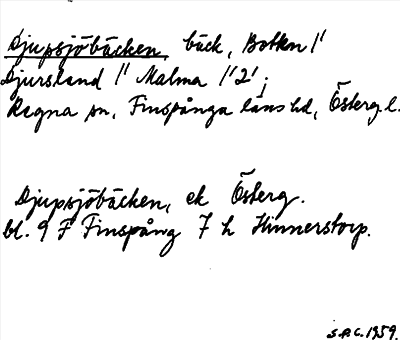 Djupsjöbäcken, bäck, Botten 1'
Djursland 1' Malma 1'2';
Regna sn, Finspånga läns hd, Österg. l.
Djupsjöbäcken, ek Österg.
bl. 9 F Finspång 7 h Hinnerstorp.
S.A.C. 1959.